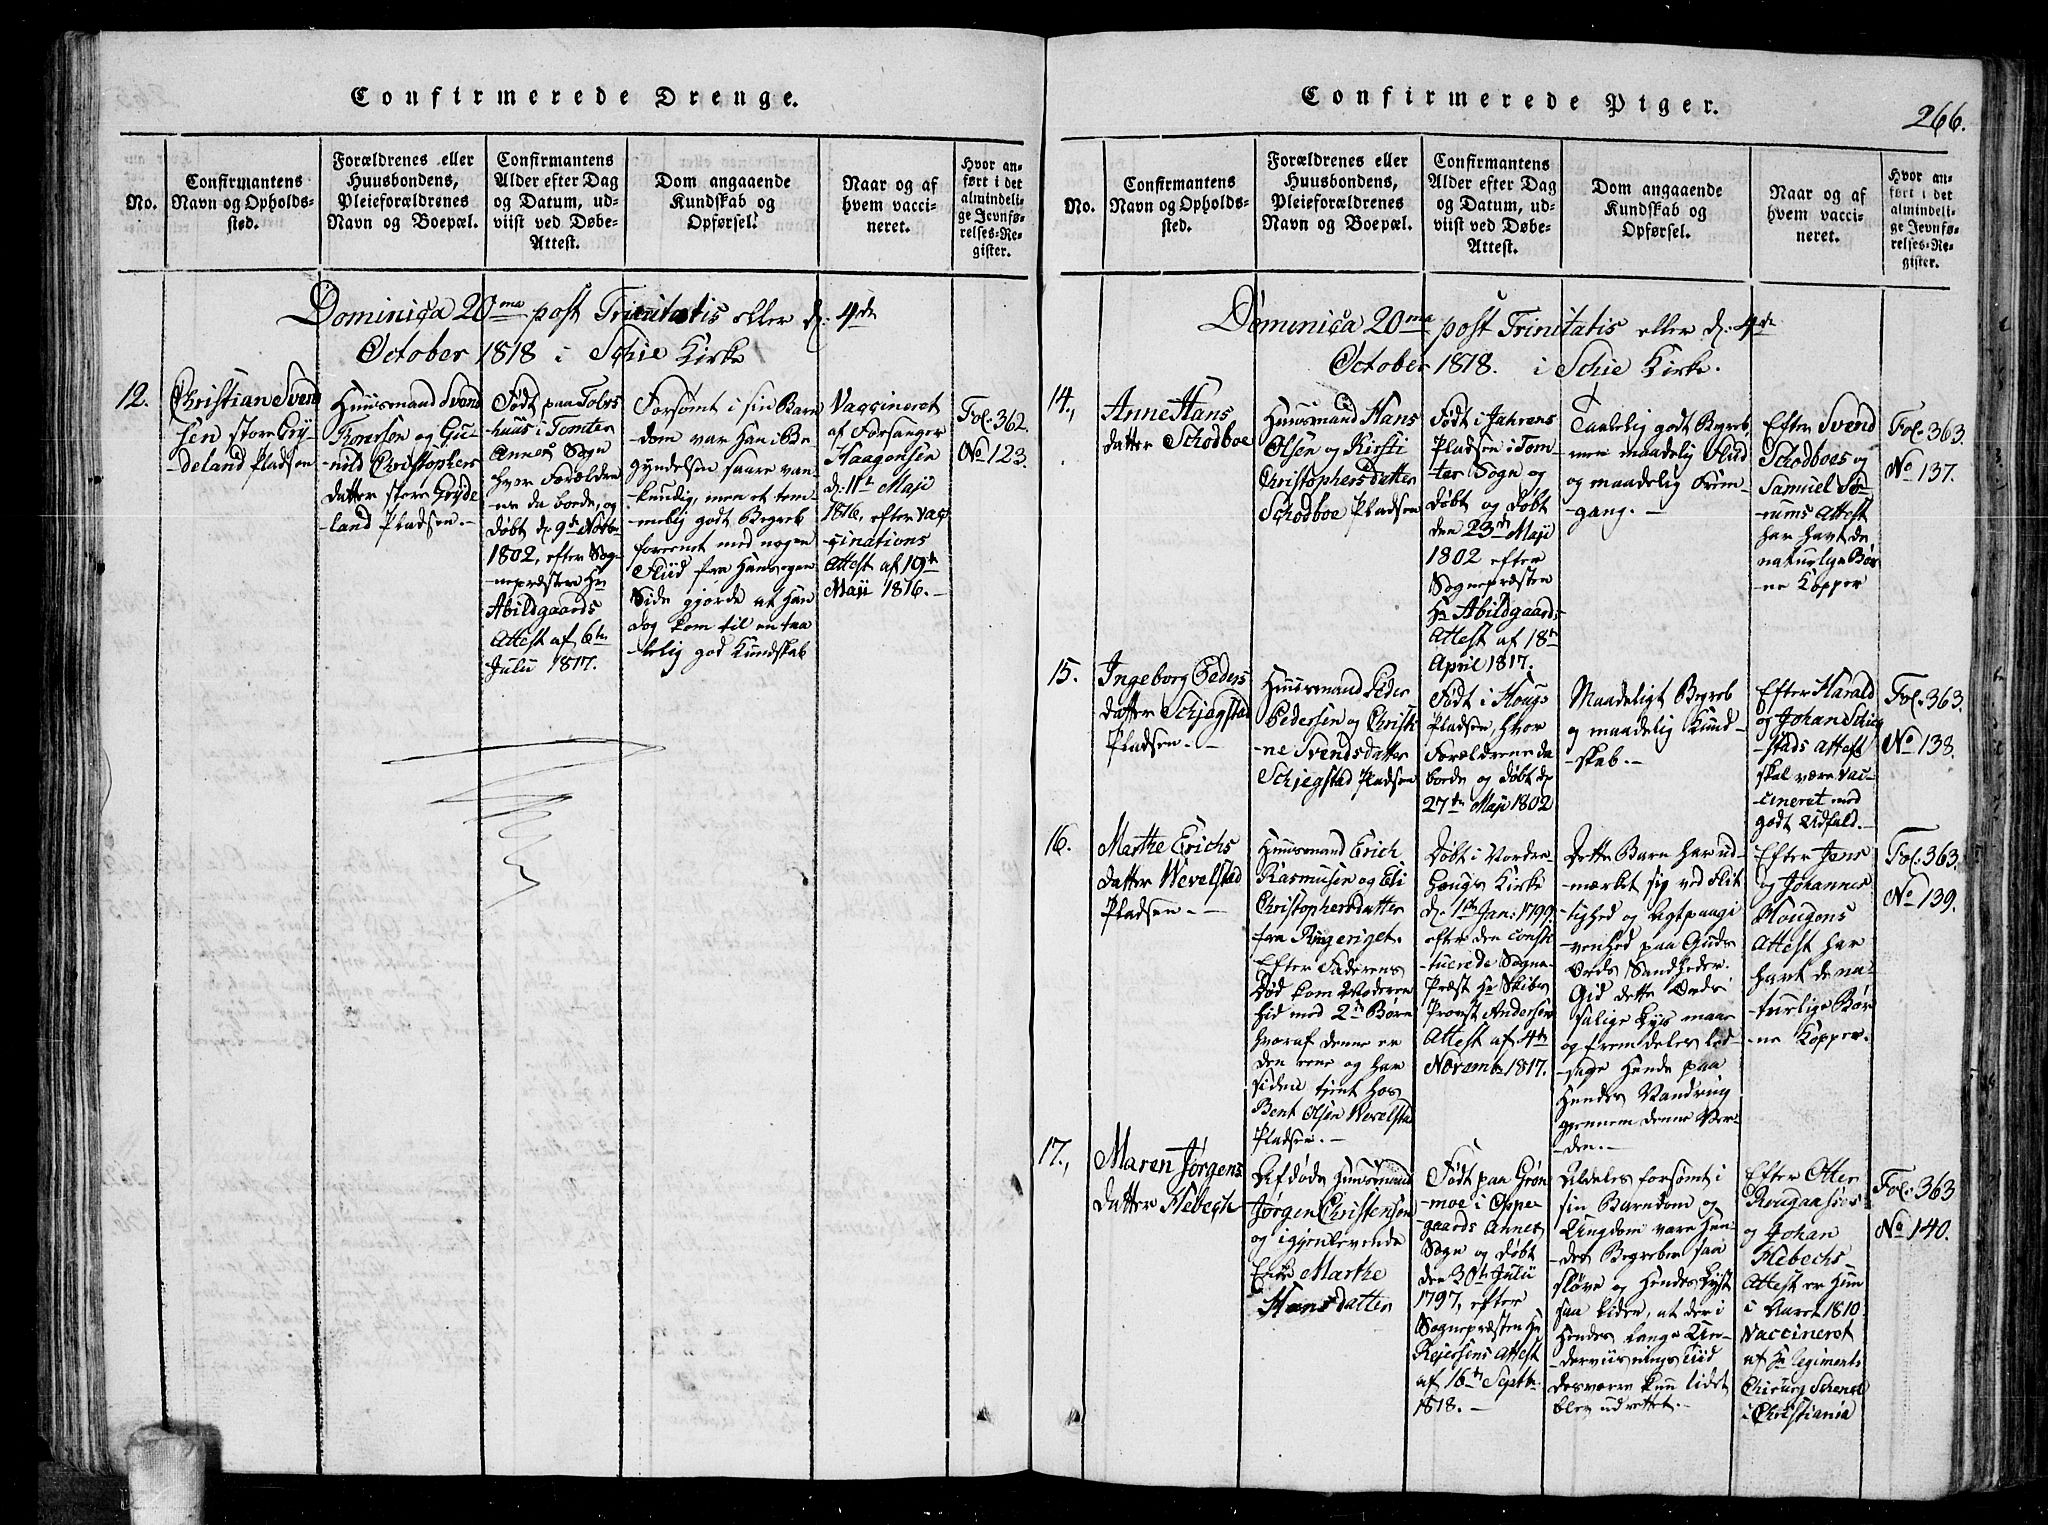 Confirmerede Drenge.
No.
Confirmantens
Navn og Opholds-
sted.
Forældrenes eller
Huusbondens,
Pleieforældrenes
Navn og Boepæl.
Confirmantens
Alder efter Dag
og Datum, ud-
viist ved Døbe-
Attest.
Dom angaaende
Kundskab og
Opførsel.
Naar og af
hvem vacci-
neret.
Hvor an-
ført i det
almindeli-
ge Jevnfø-
relses-Re-
gister.
Dominica 20ma post Trinitatis eller d: 4de
October 1818 i Schie Kirke
12.
Christian Svend
sen store Gry-
deland Pladsen
Huusmand Svend
og Gu-
-nild Christophers
datter store Gryde
-land Pladsen.-
Født paa
huus i Tomter
Annex Sogn
hvor Forældre
-ne da boede, og
døbt d: 9de Novbr
1802, efter Sog-
nepræsten Hr
Abildgaards
Attest af 6te
Julii 1817.
Forsømt i sin Barn
-dom var Han i Be-
gyndelsen saare van-
kundig, men et tem-
melig godt Begreb
foreenet med nogen
Fliid fra Hans egen
Side gjorde at Han
dog kom til en taa
-lelig god Kundskab
Vaccineret
af Forsanger
Haagensen
d: 11te Maji
1816, efter vac
-cinations
Attest af 19de
Maji 1816.-
Fol. 362.
No 123.
Confirmerede Piger.
266.
No.
Confirmantens
Navn og Opholds-
sted.
Forældrenes eller
Huusbondens,
Pleieforældrenes
Navn og Boepæl.
Confirmantens
Alder efter Dag
og Datum, ud-
viist ved Døbe-
Attest.
Dom angaaende
Kundskab og
Opførsel.
Naar og af
hvem vacci-
neret.
Hvor an-
ført i det
almindeli-
ge Jevnfø-
relses-Re-
gister.
Dominica 20ma post Trinitatis eller d: 4de
October 1818. i Schie Kirke.
14.,
Anne Hans
datter Schodboe
Huusmand Hans
Olsen og Kirsti
Christophersdatter
Schodboe Pladsen
Født i Jahrens
Pladsen i Tom-
ter Sogn og
døbt og døbt
den 23de Maji
1802 efter
Sognepræsten
Hr Abildgaards
Attest af 18de
April 1817.
Taalelig godt Begreb
men maadelig Fliid
og maadelig Frem-
gang.-
Efter Svend
Schodboes og
Samuel
Attest
har havt de
naturlige Bør
-ne Kopper
Fol. 363.
No 137.
15.
Ingeborg Peders
datter Schjegstad
Pladsen.-
Huusmand Peder
Pedersen og Christi
-ne Svendsdatter
Schjegstad Pladsen
Født i Houg-
Pladsen, hvor
Forældrene da
boede og døbt d:
27de Maji 1802
Maadeligt Begreb
og maadelig Kund
-skab.-
Efter Harald
og Johan Schieg
-stads Attest
skal være vac-
-cineret med
godt Udfald.-
Fol. 363.
No 138.
16.
Marthe Erichs
datter Wevelstad
Pladsen.-
Huusmand Erich
Rasmusen og Eli
Christophersdatter
fra Ringeriget.
Efter Faderens
Død kom Moderen
hid med 2de Børn
hvoraf denne er
den eene og har
siden tjent hos
Bent Olsen Wevelstad
Pladsen.-
Døbt i Nordre-
hougs Kirke
d: 1ste Jan: 1799.
efter den consti
-tuerede Sogne-
Præst Hr Skibs
Provst Andersens
Attest af 4de
Novembr 1817.
Dette Barn har ud-
-mærket sig ved Flit
-tighed og Agtpaagi
-venhed paa Guds
Ords Sandheder.
Gid dette Ords
salige Lys maae
og fremdeles led-
-sage Hende paa
Hendes Vandring
gjennem denne Ver-
-den.-
Efter Jens
og Johannes
Hougens
Attest har
havt de na-
-turlige Bør
-ne Kopper.
Fol. 363.
No 139.
17.,
Maren Jørgens
datter Hebech
Afdøde Huusmand
Jørgen Christensen
og igjenlevende
Enke Marthe
Hansdatter
Født paa Grøn
-moe i Oppe-
gaards Annex
Sogn og døbt
den 30te Julii
1797, efter
Sognepræsten Hr
Rejersens Attest
af 16te Septbr.
1818.-
Aldeles forsømt i
sin Barndom og
Ungdom vare Hen-
-des Begreber saa
sløve og Hendes Lyst
saa liden, at der i
Hendes lange Un-
-derviisnings Tiid
desværre kun lidet
blev udrettet.-
Efter Otter
og Johan
Hebechs
Attest er Hun
i Aaret 1810
Vaccineret
af Hr Regiments
Chirurg
i Christiania
Fol. 363
No 140.